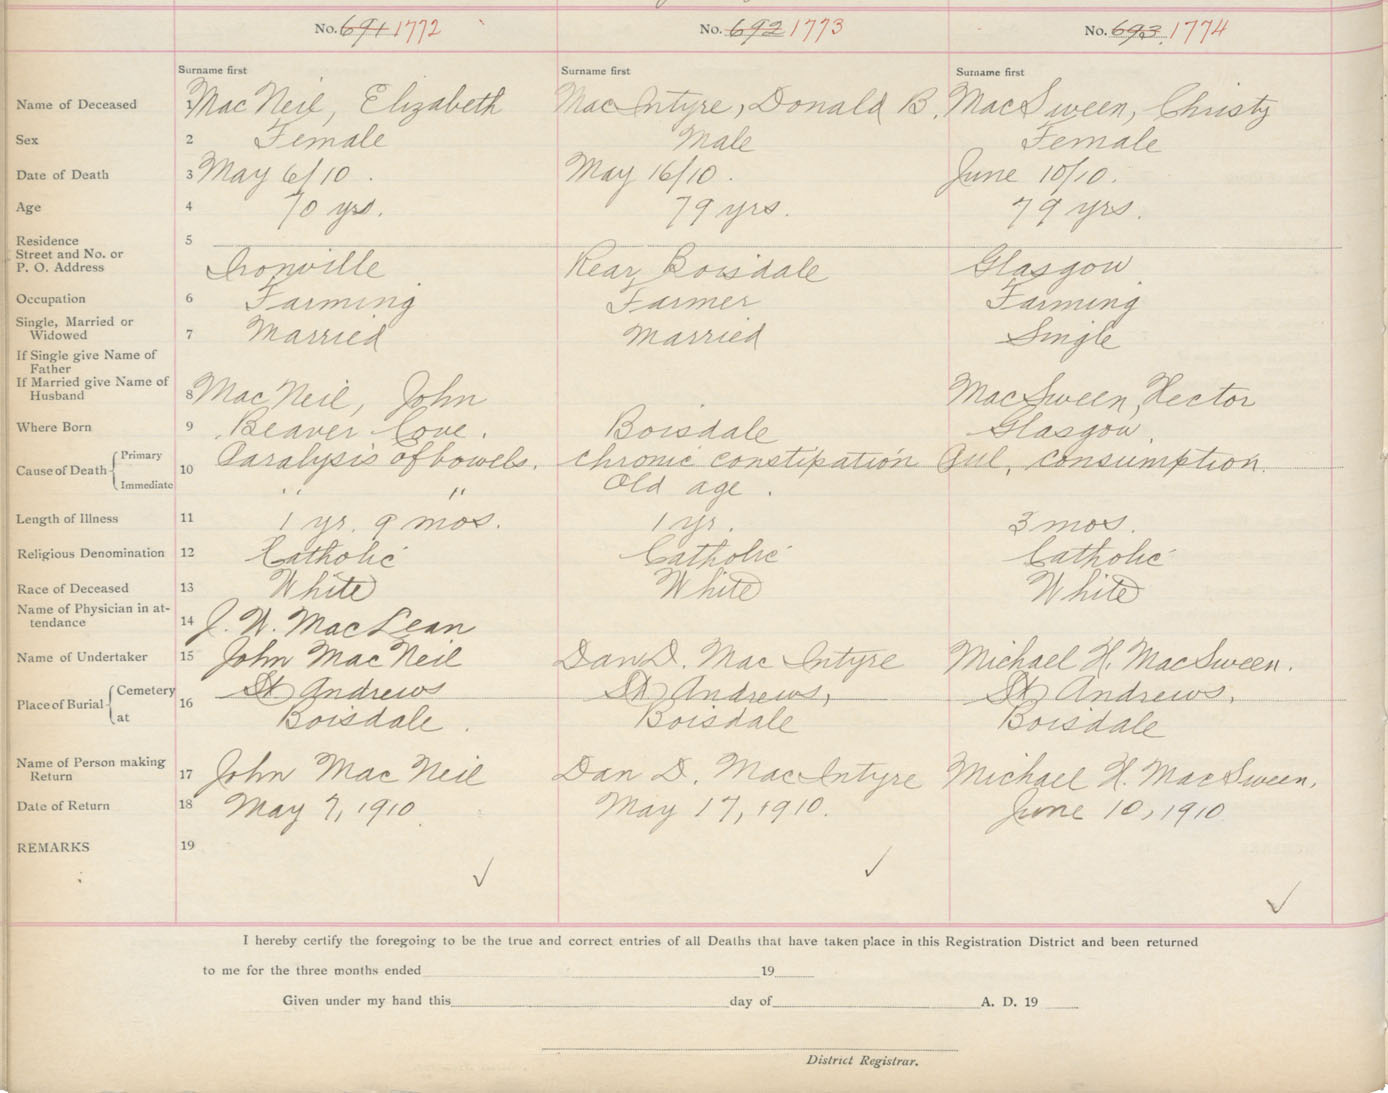 No. 691 1772 No. 692 1773 No. 693 1774
Surname first Surname first Surname first
Name of Deceased 1 MacNeil, Elizabeth MacIntyre, Donald B. MacSween, Christy
Sex 2 Female Male Female
Date of Death 3 May 6/10. May 16/10. June 10/10.
Age 4 70 yrs. 79 yrs. 79 yrs.
Residence 5
Street and No. or
P. O. Address Ironville Rear Boisdale Glasgow
Occupation 6 Farming Farmer Farming
Single, Married or
Widowed 7 Married Married Single
If Single give Name of
Father
If Married give Name of
Husband 8 MacNeil, John MacSween, Hector
Where Born 9 Beaver Cove. Boisdale Glasgow.
Cause of Death Primary 10 Paralysis of bowels. chronic constipation Pul. consumption.
Immediate " " Old age.
Length of Illness 11 1 yr. 9 mos. 1 yr. 3 mos.
Religious Denomination 12 Catholic Catholic Catholic
Race of Deceased 13 White White White
Name of Physician in at-
tendance 14 J. W. MacLean
Name of Undertaker 15 John MacNeil Dan D. MacIntyre Michael H. MacSween.
Place of Burial Cemetery 16 St Andrews St Andrews, St Andrews,
at Boisdale. Boisdale Boisdale
Name of Person making
Return 17 John MacNeil Dan D. MacIntyre Michael H. MacSween.
Date of Return 18 May 7, 1910 May 17, 1910. June 10, 1910
REMARKS 19
I hereby certify the foregoing to be the true and correct entries of all Deaths that have taken place in this Registration District and been returned
to me for the three months ended 19
Given under my hand this day of A. D. 19
District Registrar.